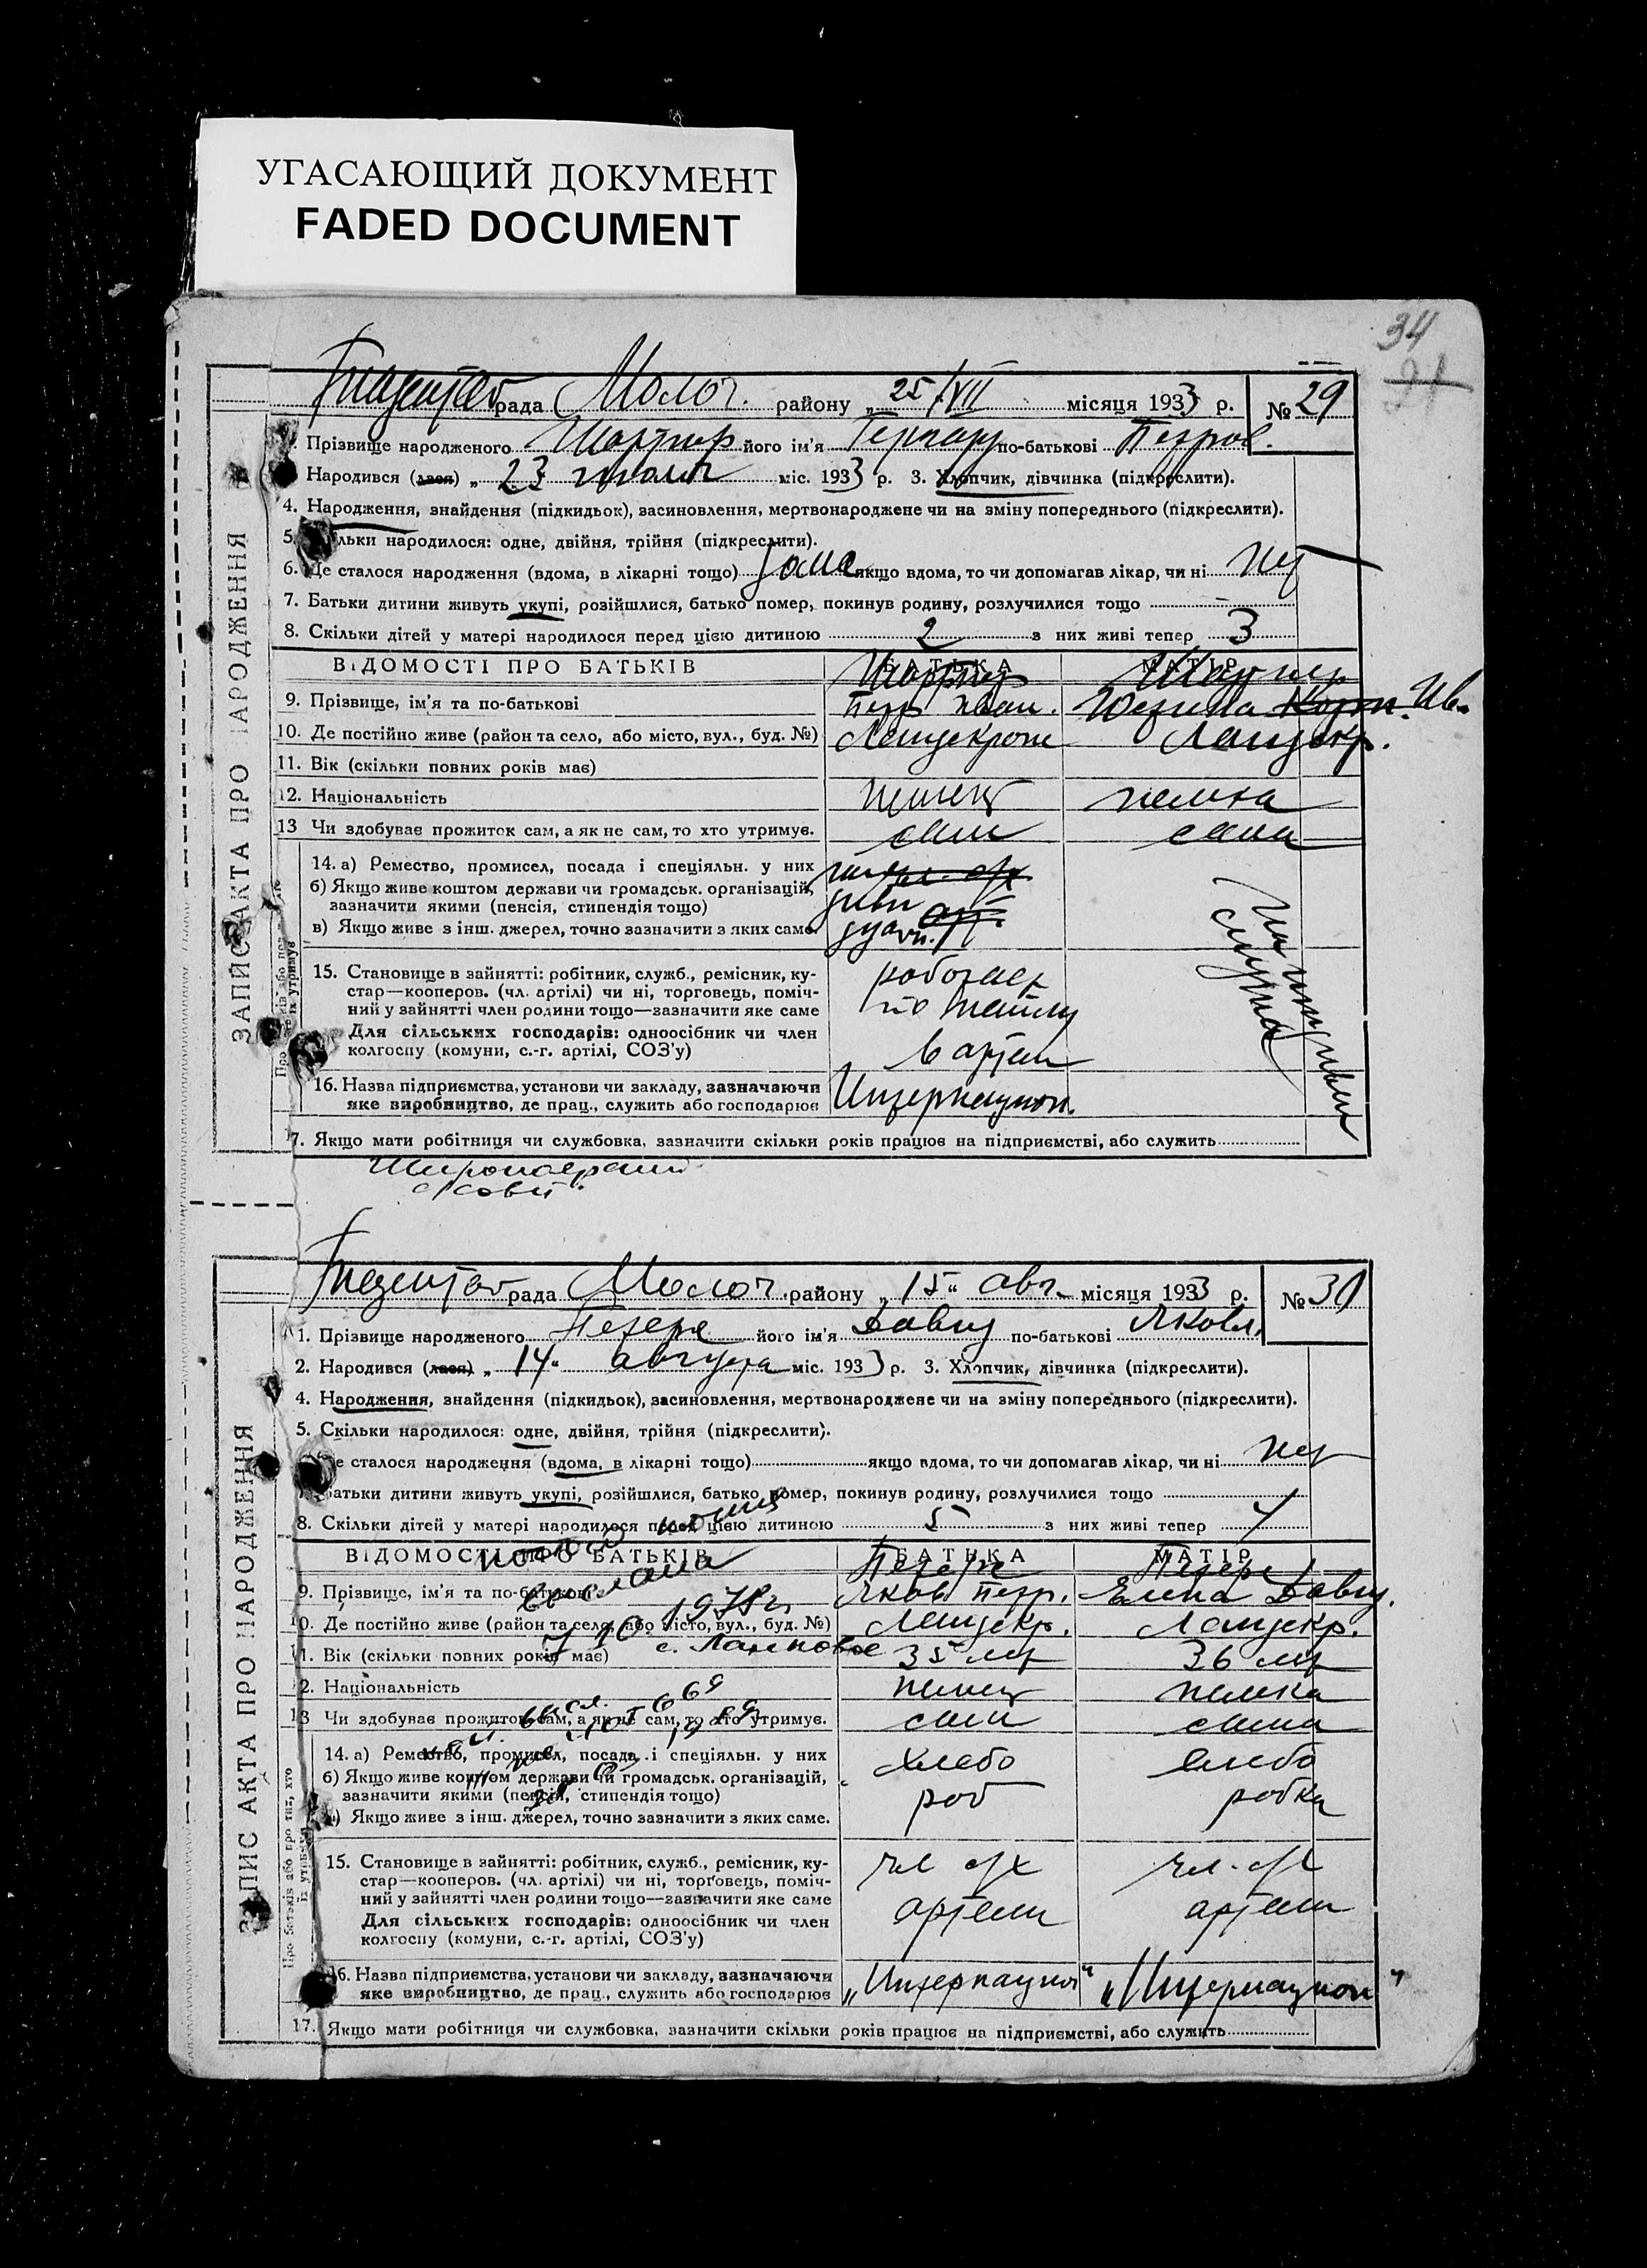 УГАСАЮЩИЙ ДОКУМЕНТ
FADED DOCUMENT
34
рада Молоч. району „ 25/VII місяця 1933 р. № 29
Прізвище народженого його ім'я по-батькові Петров.
Народився (лася) „ 23 міс. 1933 р. 3. Хлопчик, дівчинка (підкреслити).
4. Народження, знайдення (підкидьок), засиновлення, мертвонароджене чи на зміну попереднього (підкреслити).
5. льки народилося: одне, двійня, трійня (підкреслити).
6. Де сталося народження (вдома, в лікарні тощо) дома якщо вдома, то чи допомагав лікар, чи ні нет
7. Батьки дитини живуть укупі, розійшлися, батько помер, покинув родину, розлучилися тощо
8. Скільки дітей у матері народилося перед цією дитиною 2 з них живі тепер 3
ВІДОМОСТІ ПРО БАТЬКІВ БАТЬКА МАТІР
9. Прізвище, ім'я та по-батькові Петр Иван. Ив.
10. Де постійно живе (район та село, або місто, вул., буд. №) Ландскрон Ландскр.
11. Вік (скільки повних років має)
12. Національність немец немка
13 Чи здобуває прожиток сам, а як не сам, то хто утримує. сам сама
14. а) Ремество, промисел, посада і спеціяльн. у них
б) Якщо живе коштом держави чи громадськ. організацій,
зазначити якими (пенсія, стипендія тощо)
в) Якщо живе з інш. джерел, точно зазначити з яких саме.
15. Становище в зайнятті: робітник, служб., ремісник, ку-
стар—кооперов. (чл. артілі) чи ні, торговець, поміч-
ний у зайнятті член родини тощо—зазначити яке саме
Для сільських господарів: одноосібник чи член
колгоспу (комуни, с.-г. артілі, СОЗ'у)
работает
по найму
в артели
16. Назва підприємства, установи чи закладу, зазначаючи
яке виробництво, де прац., служить або господарює
Интернацион.
7. Якщо мати робітниця чи службовка, зазначити скільки років працює на підприємстві, або служить
ЗАПИС АКТА ПРО НАРОДЖЕННЯ
рада Молоч. району „ 15 " авг. місяця 1933 р. № 30
1. Прізвище народженого Петерс його ім'я Давид по-батькові Яковл.
2. Народився (лася) „ 14 " августа міс. 1933 р. 3. Хлопчик, дівчинка (підкреслити).
4. Народження, знайдення (підкидьок), засиновлення, мертвонароджене чи на зміну попереднього (підкреслити).
5. Скільки народилося: одне, двійня, трійня (підкреслити).
е сталося народження (вдома, в лікарні тощо) якщо вдома, то чи допомагав лікар, чи ні нет
батьки дитини живуть укупі, розійшлися, батько помер, покинув родину, розлучилися тощо
8. Скільки дітей у матері народилося перед цією дитиною 5 з них живі тепер
ВІДОМОСТІ ПРО БАТЬКІВ БАТЬКА МАТІР
Петерс Петерс
9. Прізвище, ім'я та по-батькові Яков Петр. Елена Давид.
10. Де постійно живе (район та село, або місто, вул., буд. №) Ландскр. Ландскр.
11. Вік (скільки повних років має) 35 лет 36 лет
12. Національність немец немка
13 Чи здобуває прожиток сам, а як не сам, то хто утримує. сам сама
14. а) Ремество, промисел, посада і спеціяльн. у них
б) Якщо живе коштом держави чи громадськ. організацій,
зазначити якими (пенсія, стипендія тощо)
) Якщо живе з інш. джерел, точно зазначити з яких саме.
хлебо хлебо
роб робка
15. Становище в зайнятті: робітник, служб., ремісник, ку-
стар—кооперов. (чл. артілі) чи ні, торговець, поміч-
ний у зайнятті член родини тощо—зазначити яке саме
Для сільських господарів: одноосібник чи член
колгоспу (комуни, с.-г. артілі, СОЗ'у)
чл с/х чл. с/х
артели артели
16. Назва підприємства, установи чи закладу, зазначаючи
яке виробництво, де прац., служить або господарює
„Интернацион" „Интернацион"
17. Якщо мати робітниця чи службовка, зазначити скільки років працює на підприємстві, або служить
ЗАПИС АКТА ПРО НАРОДЖЕННЯ